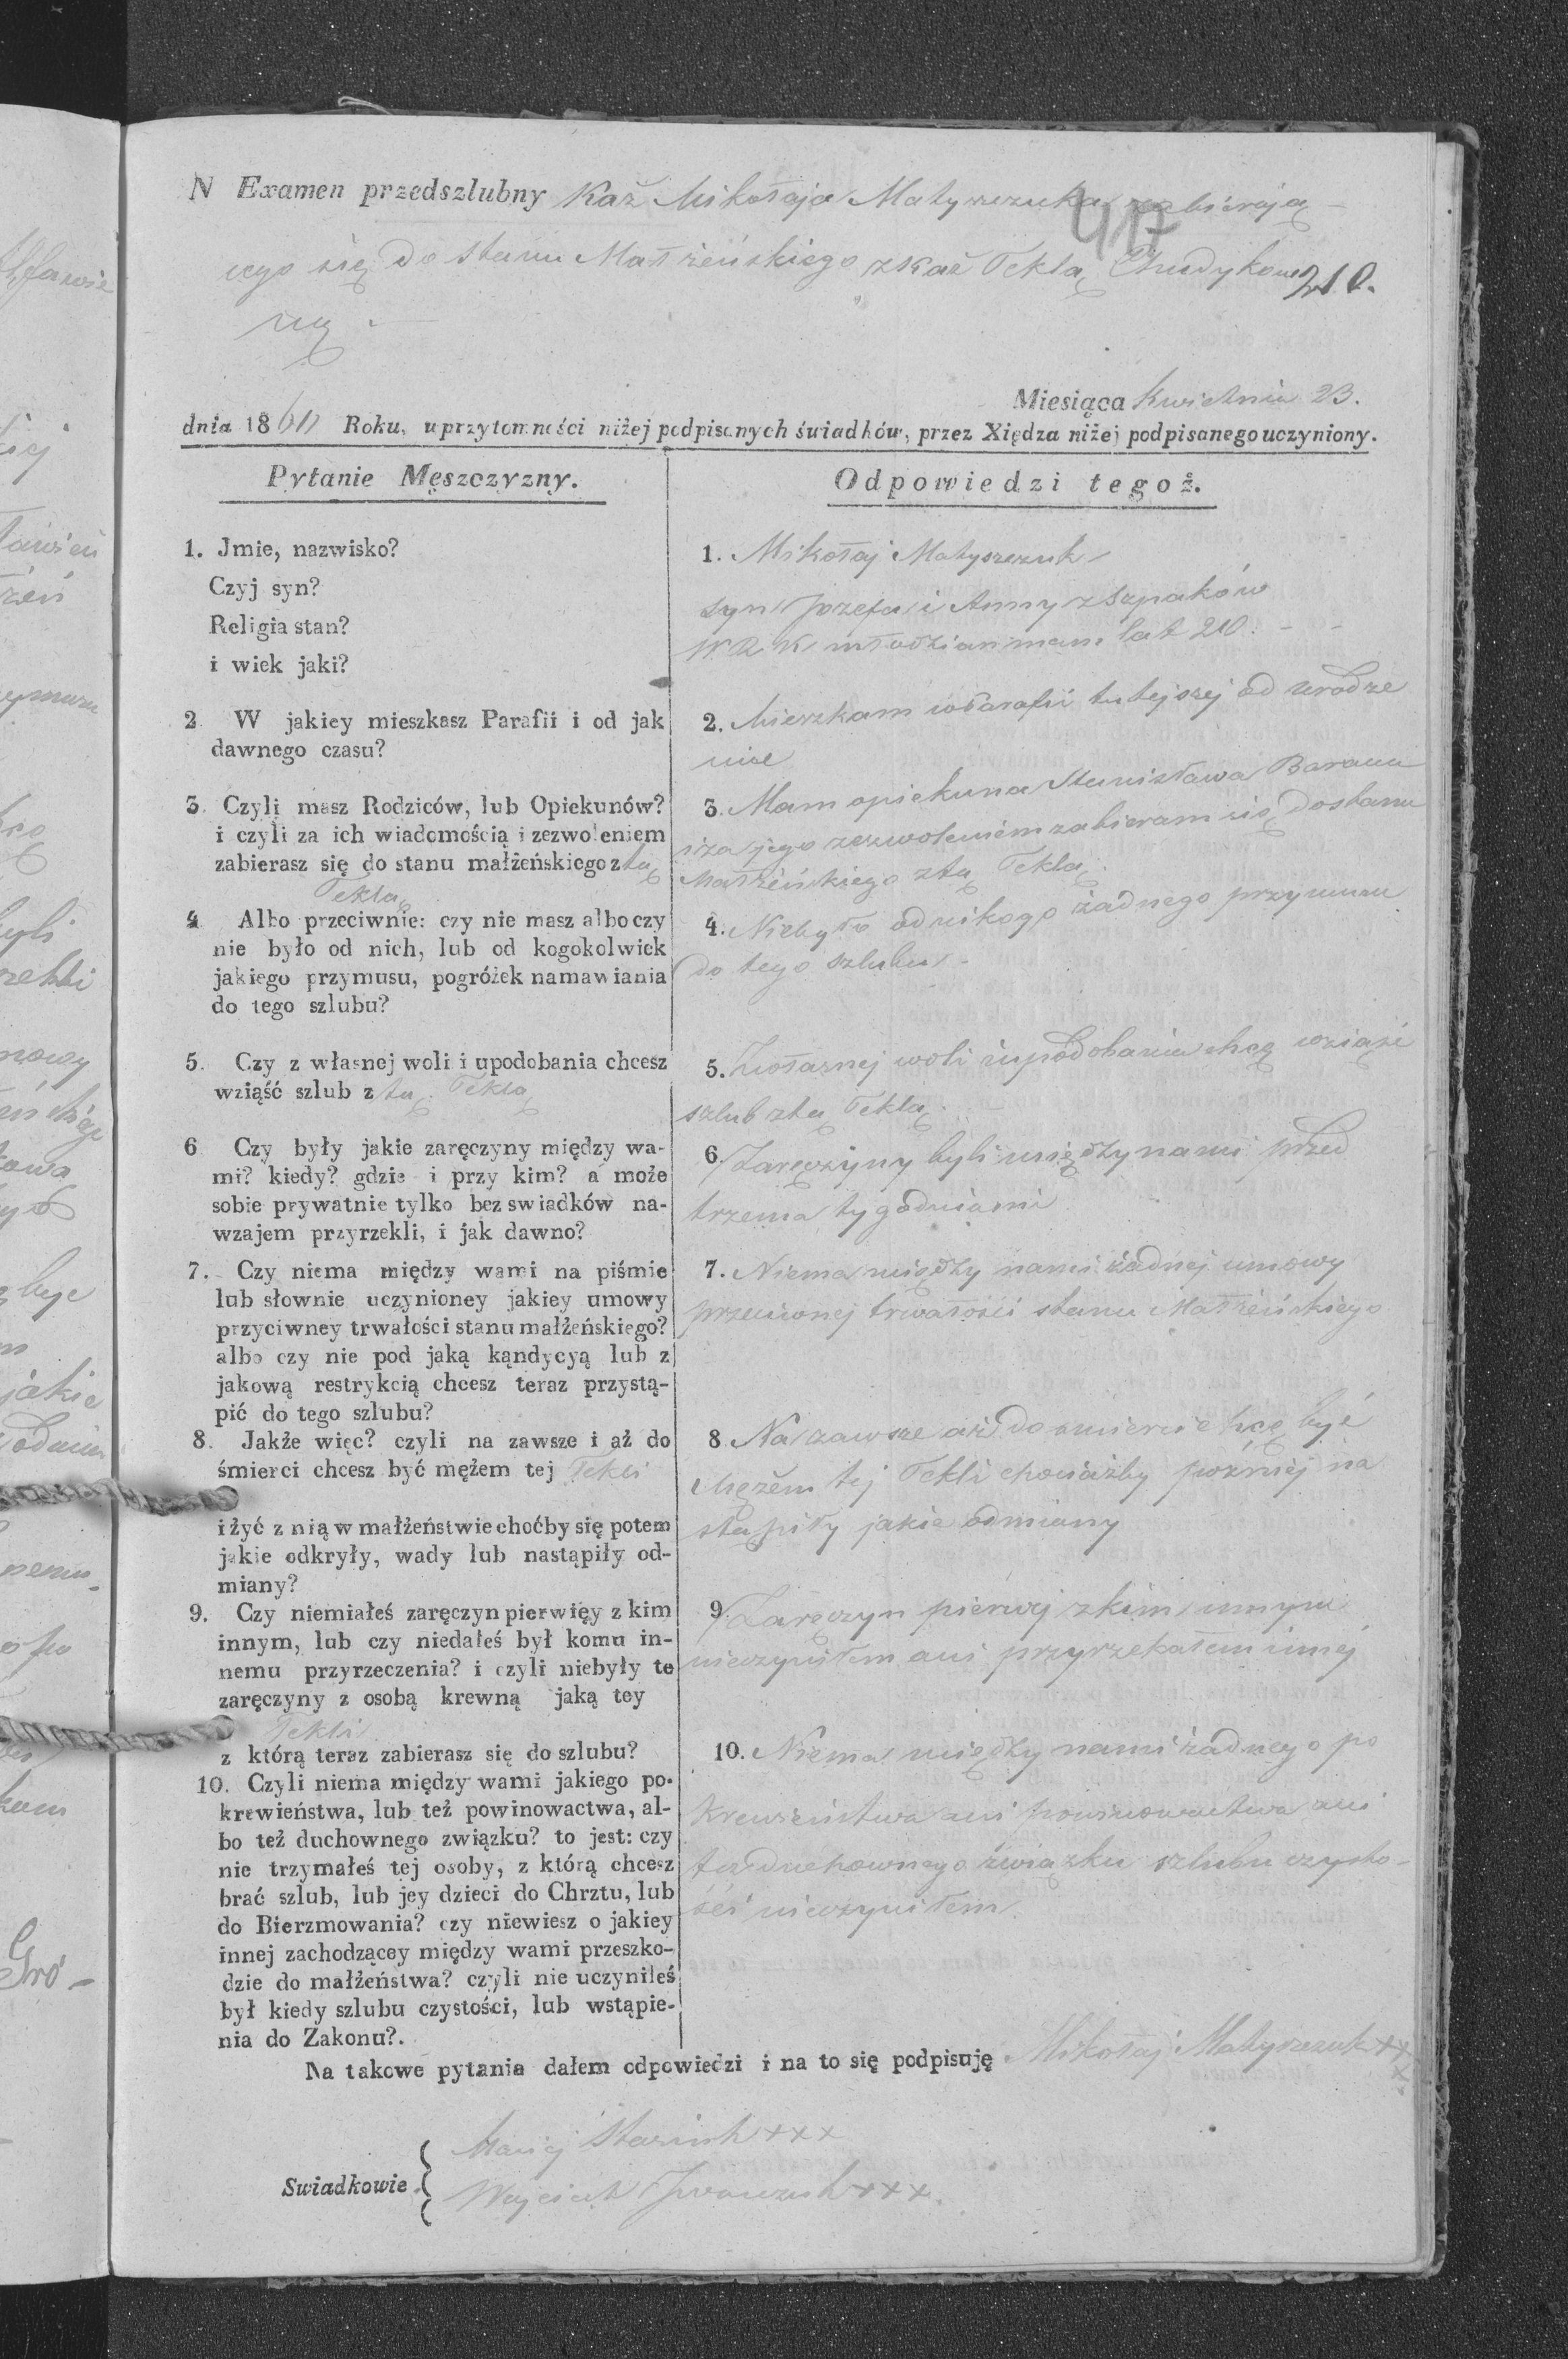 N Examen przedszlubny Każ Mikołaja Matyszczuka zabierają-
417
cego się do stanu Małżeńskiego zkaż Teklą Chudykow
210.
ną.
Miesiąca Kwietnia 23.
dnia 1860 Roku, uprzytomności niżej podpisanych świadków, przez Xiędza niżej podpisanego uczyniony.
Pytanie Męszczyzny.
1. Jmie, nazwisko?
Czyj syn?
Religia stan?
i wiek jaki?
2 W jakiey mieszkasz Parafii i od jak
dawnego czasu?
3. Czyli masz Rodziców, lub Opiekunów?
i czyli za ich wiadomością i zezwoleniem
zabierasz się do stanu małżeńskiego z tą
Teklą
4 Albo przeciwnie: czy nie masz albo czy
nie było od nich, lub od kogokolwiek
jakiego przymusu, pogróżek namawiania
do tego szlubu?
5. Czy z własnej woli i upodobania chcesz
wziąść szlub z tą Teklą
6 Czy były jakie zaręczyny między wa-
mi? kiedy? gdzie i przy kim? a może
sobie prywatnie tylko bez swiadków na-
wzajem przyrzekli, i jak dawno?
7. Czy niema między wami na piśmie
lub słownie uczynioney jakiey umowy
przyciwney trwałości stanu małżeńskiego?
albo czy nie pod jaką kąndycyą lub z
jakową restrykcią chcesz teraz przystą-
pić do tego szlubu?
8. Jakże więc? czyli na zawsze i aż do
śmierci chcesz być mężem tej Tekli
i żyć z nią w małżeństwie choćby się potem
jakie odkryły, wady lub nastąpiły od-
miany?
9. Czy niemiałeś zaręczyn pierwięy z kim
innym, lub czy niedałeś był komu in-
nemu przyrzeczenia? i czyli niebyły te
zaręczyny z osobą krewną jaką tey
Tekli
z którą teraz zabierasz się do szlubu?
10. Czyli niema między wami jakiego po-
krewieństwa, lub też powinowactwa, al-
bo też duchownego związku? to jest: czy
nie trzymałeś tej osoby, z którą chcesz
brać szlub, lub jey dzieci do Chrztu, lub
do Bierzmowania? czy niewiesz o jakiey
innej zachodzącey między wami przeszko-
dzie do małżeństwa? czyli nie uczyniłeś
był kiedy szlubu czystości, lub wstąpie-
nia do Zakonu?.
Odpowiedzi tegoż.
1. Mikołaj Matyszczuk
syn Józefa i Anny z Szpaków
W R K młodzian mam lat 20. - -
2. Mieszkam w Parafii tutejszej od urodze
nia
3. Mam opiekuna Stanisława Barana
i za jego zezwoleniem zabieram się do stanu
Małżeńskiego z tą Teklą.
4. Niebyło od nikogo żadnego przymusu
do tego szlubu.
5. Zwłasnej woli i upodobania chcę wziąść
szlub z tą Teklą.
6. Zaręczyny byli między nami przed
trzema tygodniami
7. Niema między nami żadnej umowy
przeciwnej trwałości stanu Małżeńskiego
8. Na zawsze aż do śmierci chcę być
Mężem tej Tekli chociażby poźniej na
stąpiły jakie odmiany
9. Zaręczyn pierwej z kim innym
nieczyniłem ani przyrzekałem innej
10. Niema między nami żadnego po
krewieństwa ani powinowactwa ani
też duchownego związku szlubu czysto-
ści nieczyniłem
Na takowe pytania dałem odpowiedzi i na to się podpisuję Mikołaj Matyszczuk xx
x
Swiadkowie
Maciej xxx
Wojciech xxx.